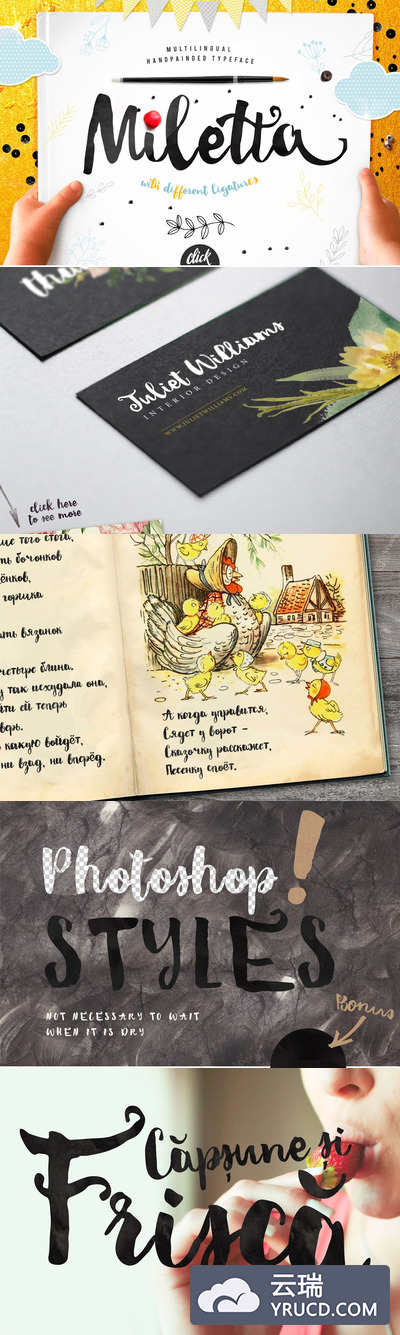 MULTILINGUAL
HANDPAINDED TYPEFACE
Miletta
with different ligatures
click
Juliet Williams
INTERIOR DESIGN
WWW.JULIETWILLIAMS.COM
click here
to see more
ше того стога,
ть бочонков
ёнков,
горшка
ать вязанок
четыре блина.
у так исхудала она,
йти ей теперь
верь.
в какую войдёт,
ни взад, ни вперёд.
А когда управится,
Сядет у ворот –
Сказочку расскажет,
Песенку споёт.
Photoshop!
STYLES
NOT NECESSARY TO WAIT
WHEN IT IS DRY
Bonus
Căpșune și
Frișcă
云瑞
YRUCD.COM